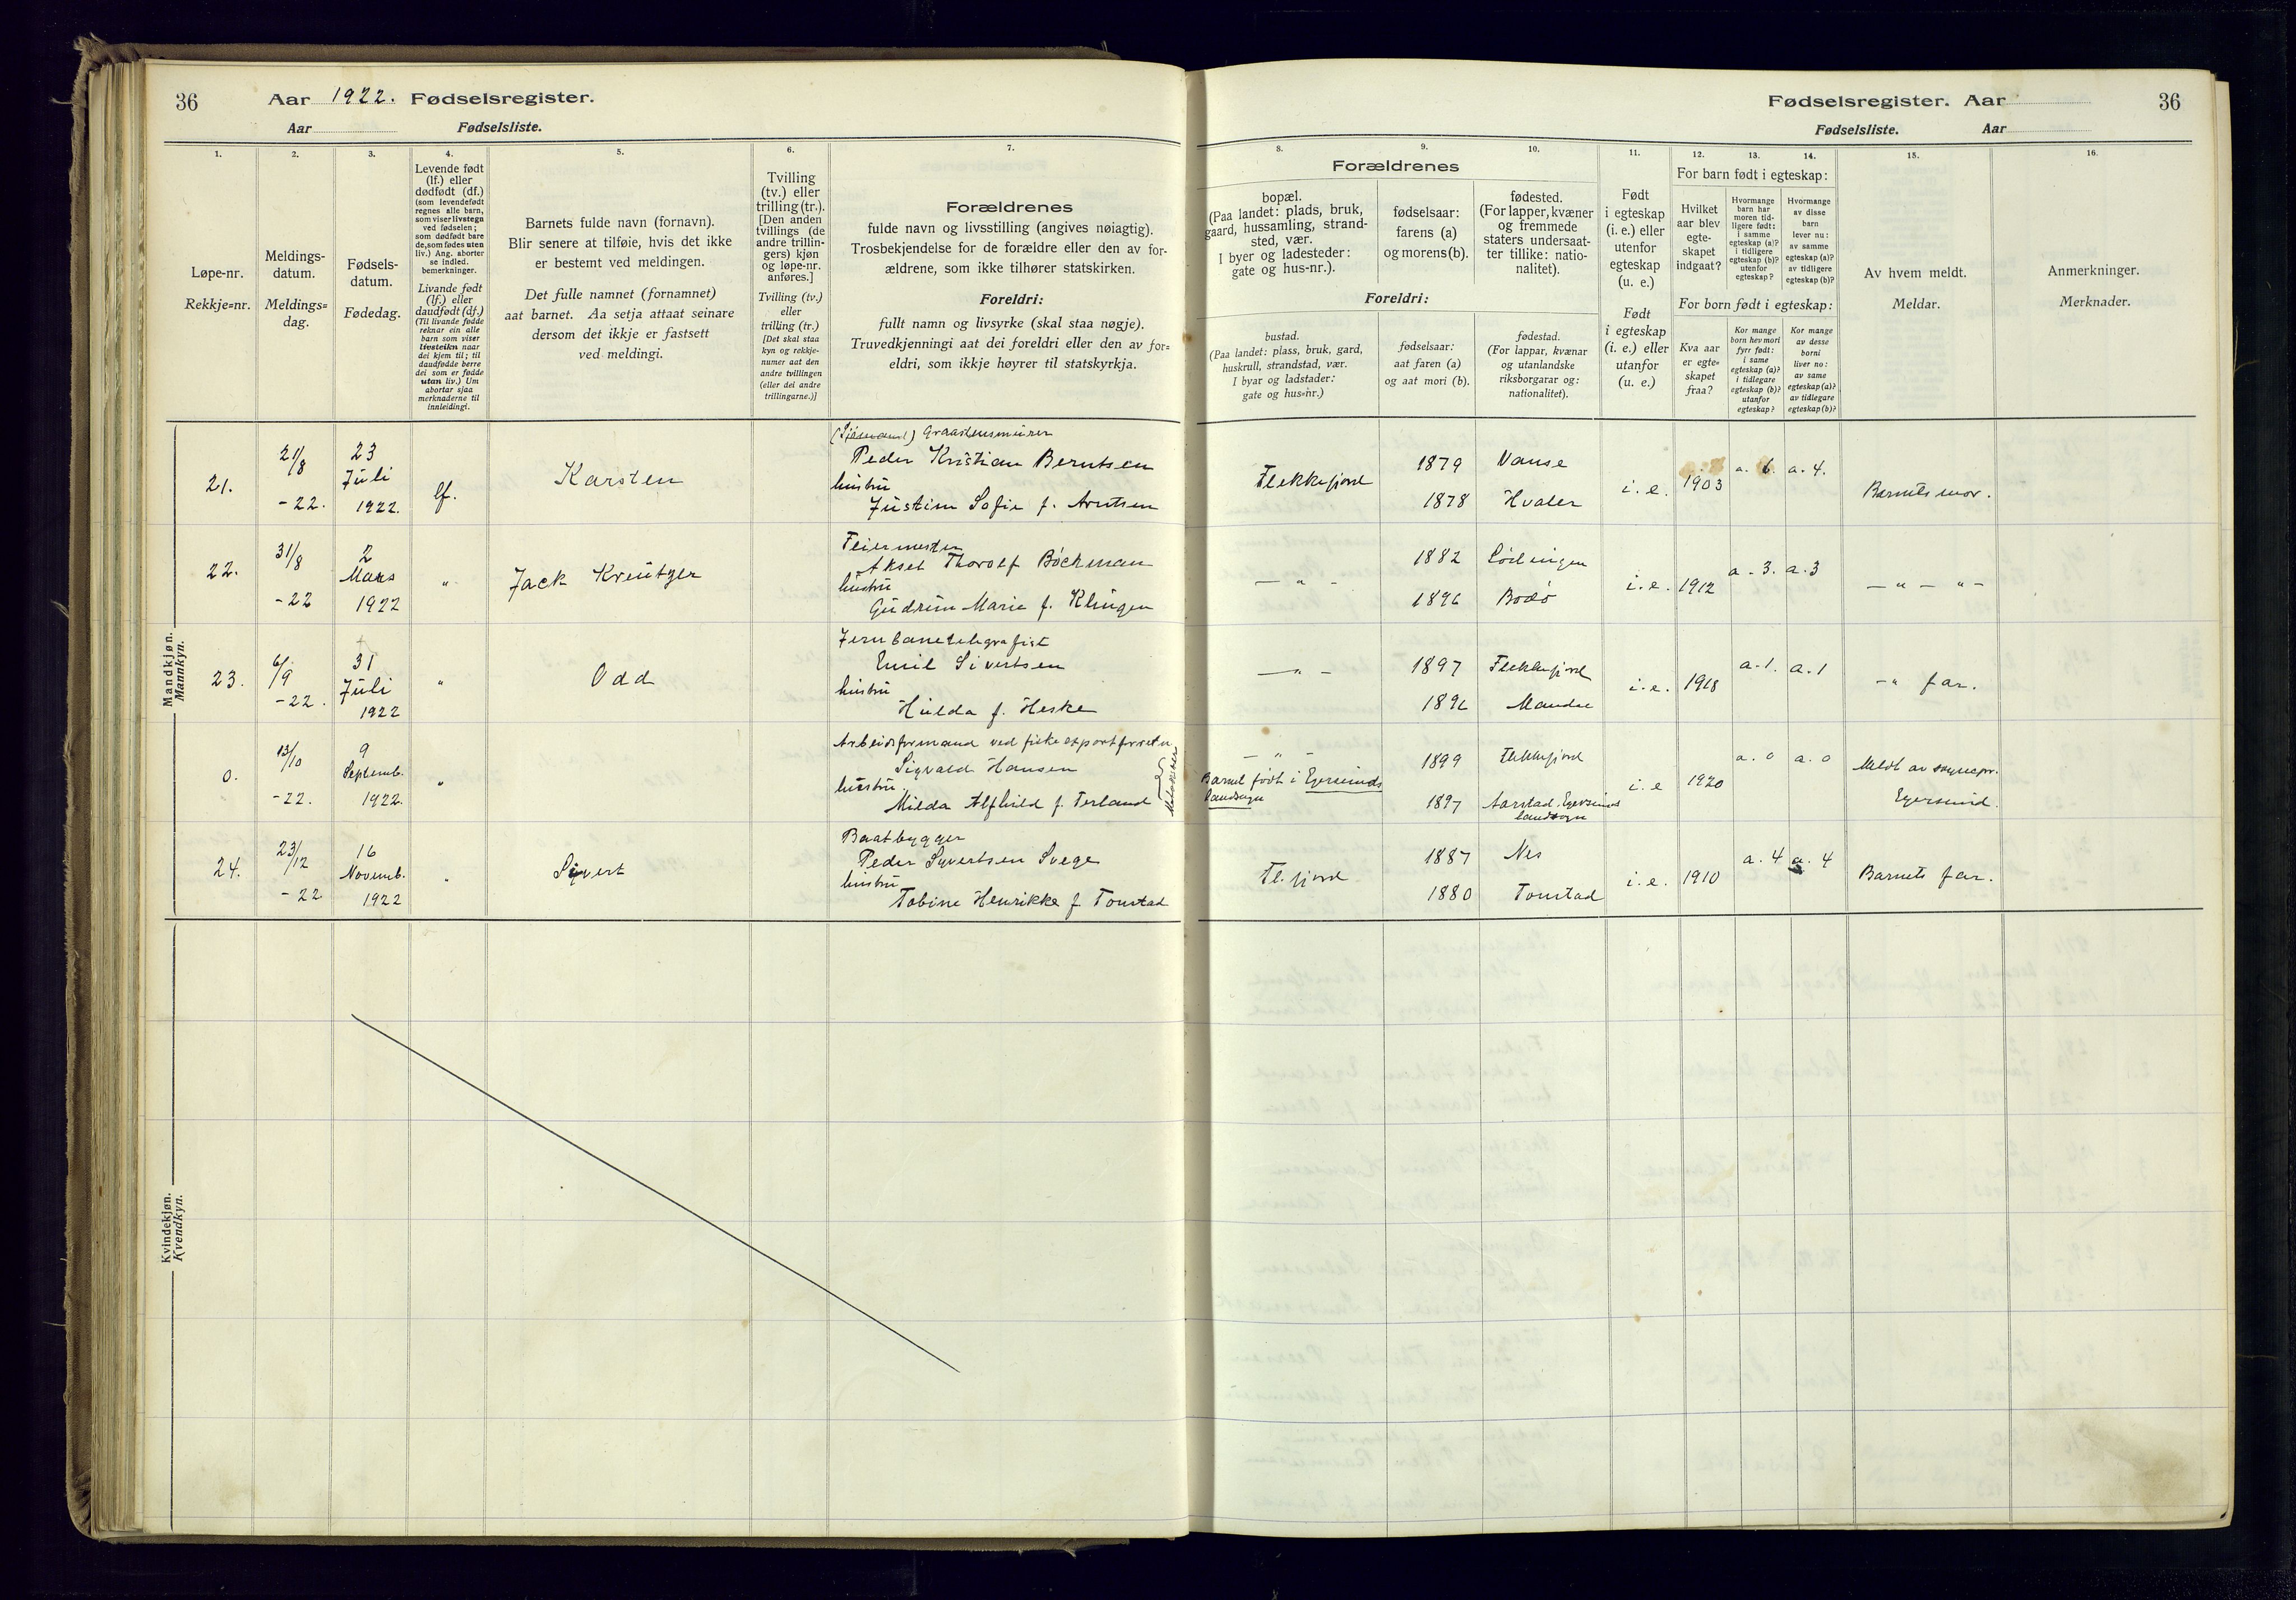 36 Aar 1922. Fødselsregister.
Aar Fødselsliste.
Fødselsregister. Aar 36
Fødselsliste. Aar
1. 2. 3. 4. 5. 6. 7. 8. 9. 10. 11. 12. 13. 14. 15. 16.
Løpe-nr.
Rekkje=nr.
Meldings-
datum.
Meldings=
dag.
Fødsels-
datum.
Fødedag.
Levende født
(lf.) eller
dødfødt (df.)
(som levendefødt
regnes alle barn,
som viser livstegn
ved fødselen;
som dødfødt bare
de, som fødes uten
liv.) Ang. aborter
se indled.
bemerkninger.
Livande født
(lf.) eller
daudfødt (df.)
(Til livande fødde
reknar ein alle
barn som viser
livsteikn naar
dei kjem til; til
daudfødde berre
dei som er fødde
utan liv.) Um
abortar sjaa
merknaderne til
innleidingi.
Barnets fulde navn (fornavn).
Blir senere at tilføie, hvis det ikke
er bestemt ved meldingen.
Det fulle namnet (fornamnet)
aat barnet. Aa setja attaat seinare
dersom det ikkje er fastsett
ved meldingi.
Tvilling
(tv.) eller
trilling (tr.).
[Den anden
tvillings (de
andre trillin-
gers) kjøn
og løpe-nr.
anføres.]
Tvilling (tv.)
eller
trilling (tr.)
[Det skal staa
kyn og rekkje-
numer aat den
andre tvillingen
(eller dei andre
trillingarne.)]
Forældrenes
fulde navn og livsstilling (angives nøiagtig).
Trosbekjendelse for de forældre eller den av for-
ældrene, som ikke tilhører statskirken.
Foreldri:
fullt namn og livsyrke (skal staa nøgje).
Truvedkjenningi aat dei foreldri eller den av for=
eldri, som ikkje høyrer til statskyrkja.
Forældrenes
bopæl.
(Paa landet: plads, bruk,
gaard, hussamling, strand-
sted, vær.
I byer og ladesteder:
gate og hus-nr.).
fødselsaar:
farens (a)
og morens (b).
fødested.
(For lapper, kvæner
og fremmede
staters undersaat-
ter tillike: natio-
nalitet).
Foreldri:
bustad.
(Paa landet: plass, bruk, gard,
huskrull, strandstad, vær.
I byar og ladstader:
gate og hus=nr.)
fødselsaar:
aat faren (a)
og aat mori (b).
fødestad.
(For lappar, kvænar
og utanlandske
riksborgarar og:
nationalitet).
Født
i egteskap
(i. e.) eller
utenfor
egteskap
(u. e.)
Født
i egteskap
(i. e.) eller
utanfor
(u. e.)
For barn født i egteskap:
Hvilket
aar blev
egte-
skapet
indgaat?
Hvormange
barn har
moren tid-
ligere født:
i samme
egteskap (a)?
i tidligere
egteskap (b)?
utenfor
egteskap?
Hvormange
av disse
barn
lever nu:
av samme
egteskap (a)?
av tidligere
egteskap (b)?
For born født i egteskap:
Kva aar
er egte=
skapet
fraa?
Kor mange
born hev mori
fyrr født:
i same
egteskap (a)?
i tidlegare
egteskap (b)?
utanfor
egteskap?
Kor mange
av desse
borni
liver no:
av same
egteskap (a)?
av tidlegare
egteskap (b)?
Av hvem meldt.
Meldar.
Anmerkninger.
Merknader.
Mandkjøn.
Mannkyn.
21. 21/8 -22. 23 Juli 1922. lf. Karsten
Graastensmurer
Peder Kristian Berntsen
hustru
Justine Sofie f. Arntsen
Flekkefjord 1879 Vanse
1878 Hvaler
i. e. 1903 a. 6. a. 4. Barnets mor.
22. 31/8 -22 2 Mars 1922 " Jack Kreutzer
Feiermester
Aksel Thorolf Böckman
hustru
Gudrun Marie f. Klingen
— " - 1882 Lödingen
1896 Bodø
i. e. 1912 a. 3. a. 3 — " — " —
23. 6/9 -22. 31 Juli 1922 " Odd
Jernbanetelegrafist
Emil Sivertsen
hustru
Hulda f. Heske
— " - 1897 Flekkefjord
1896 Mandal
i. e. 1918 a. 1. a. 1 — " far.
0. 13/10 -22. 9 Septemb. 1922. "
Arbeidsformand ved fiskeexportforretn.
Sigvald Hansen
hustru
Milda Alfhild f. Terland
Metodister
— " -
Barnet født i Egersunds
landsogn
1899 Flekkefjord
1897 Aarstad, Egersunds
landsogn
i. e 1920 a. 0 a. 0 Meldt av sognepr.
Egersund.
24. 23/12 -22 16 Novemb. 1922 " Sivert
Baatbygger
Peder Syvertsen Svege
hustru
Tobine Henrikke f Tonstad
Fl. fjord 1887 Nes
1880 Tonstad
i. e. 1910 a. 4 a. 4 Barnets far.
Kvindekjøn.
Kvendkyn.